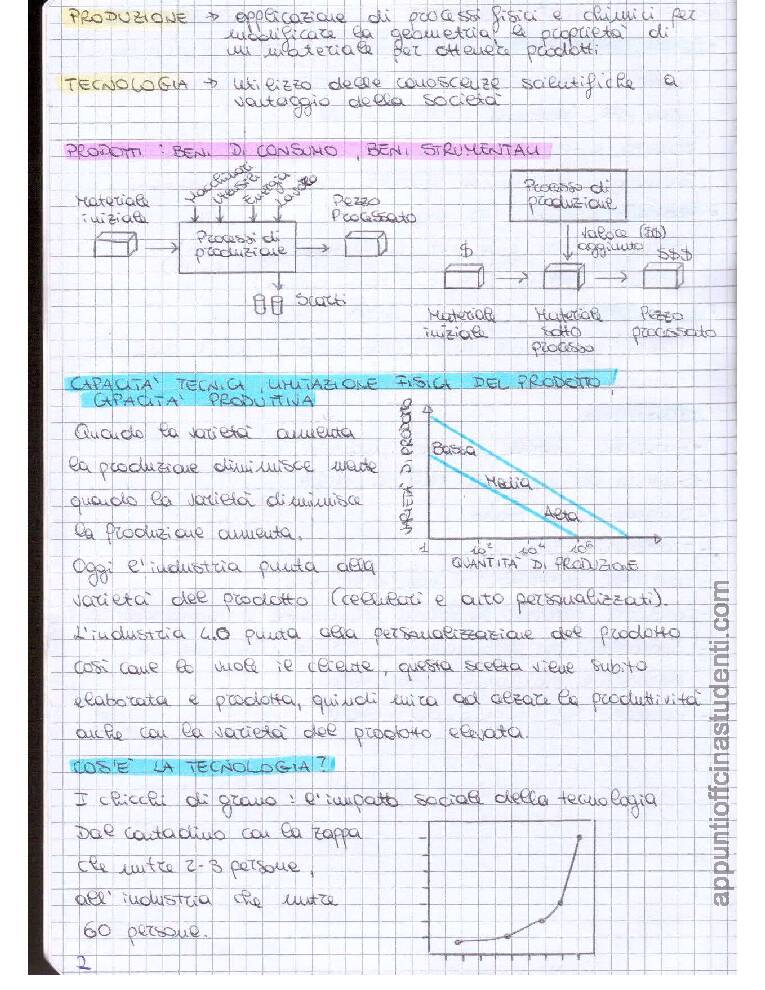 PRODUZIONE → applicazione di processi fisici e chimici per
modificare la geometria e le proprietà di
un materiale per ottenere prodotti
TECNOLOGIA → utilizzo delle conoscenze scientifiche a
vantaggio della società
PRODOTTI : BENI DI CONSUMO, BENI STRUMENTALI
Materiale
iniziale
Macchinari
Utensili
Energia
Lavoro
Processi di
produzione
Pezzo
Processato
Scarti
Processo di
produzione
valore ($$)
aggiunto
$
$$$
Materiale
iniziale
Materiale
sotto
processo
Pezzo
processato
CAPACITA' TECNICA, LIMITAZIONE FISICA DEL PRODOTTO,
CAPACITA' PRODUTTIVA
Quando la varietà aumenta
la produzione diminuisce
quando la varietà diminuisce
la produzione aumenta.
VARIETÀ DI PRODOTTO
Bassa
Media
Alta
1 10² 10⁴ 10⁶
QUANTITÀ DI PRODUZIONE
Oggi l'industria punta alla
varietà del prodotto (cellulari e auto personalizzati).
L'industria 4.0 punta alla personalizzazione del prodotto
così come lo vuole il cliente, questa scelta viene subito
elaborata e prodotta, quindi mira ad alzare la produttività
anche con la varietà del prodotto elevata.
COS'È LA TECNOLOGIA?
I chicchi di grano : l'impatto sociale della tecnologia
Dal contadino con la zappa
che nutre 2-3 persone,
all'industria che nutre
60 persone.
2
appuntioffcinastudenti.com